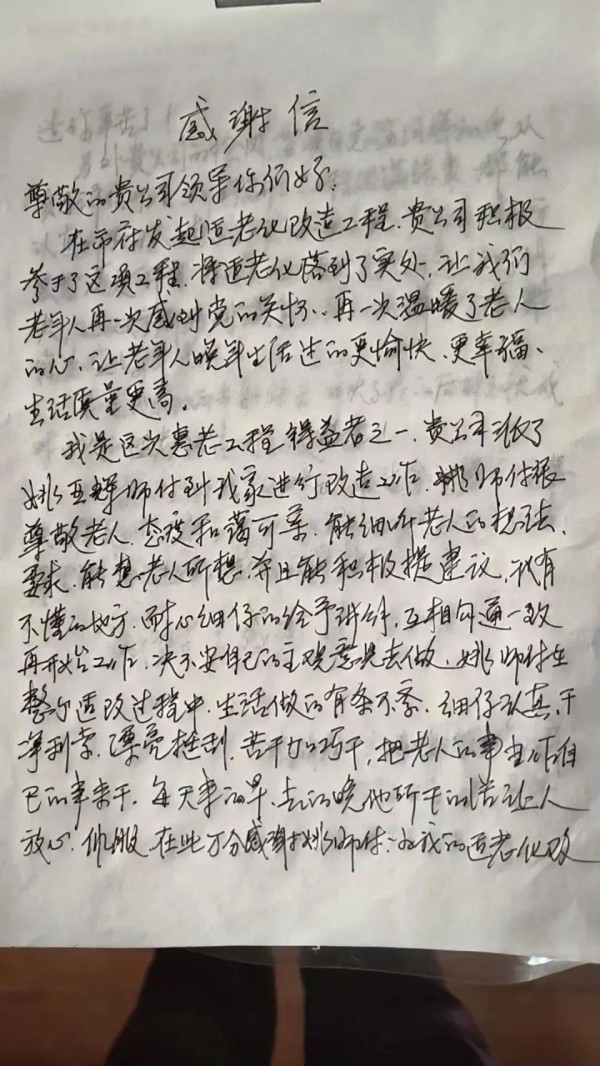 感谢信
尊敬的贵公司领导你们好.
在市府发起适老化改造工程.贵公司积极
参于了这项工程.将适老化落到了实处.让我们
老年人再一次感到党的关怀..再一次温暖了老人
的心.让老年人晚年生活过的更愉快、更幸福、
生活质量更高。
我是这次惠老工程得益者之一.贵公司派了
姚玉辉师付到我家进行改造工作.姚师付很
尊敬老人.态度和蔼可亲.能细听老人的想法、
要求.能想老人所想.并且能积极提建议.我有
不懂的地方.耐心细仔的给予讲解.互相勾通一致
再开始工作.决不安自己的主观意见去做.姚师付在
整个适改过程中.生活做的有条不紊.细仔认真.干
净利索.漂亮挺刮.苦干加巧干,把老人的事当作自
己的事来干.每天来的早.去的晚他所干的活让人
放心.佩服.在此万分感谢姚师付.为我的适老化改